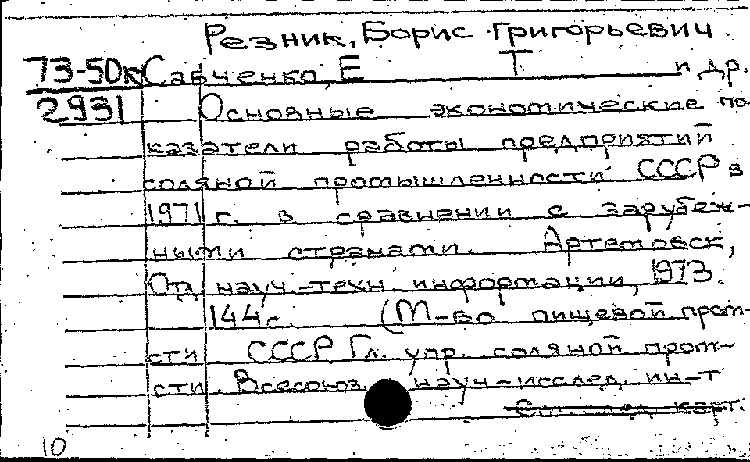 Резник, Борис Григорьевич
73-50к Савченко, Е Т и др.
2931 Основные экономические по-
казатели работы предприятий
соляной промышленности СССР в
1971 г. в сравнении с зарубеж-
ными странами. Артемовск,
Отд. науч.-техн. информации, 1973.
144 с. (М-во пищевой пром-
сти СССР Гл. упр. соляной пром-
сти. Всесоюз. науч-исслед. ин-т
См. след. карт.
10